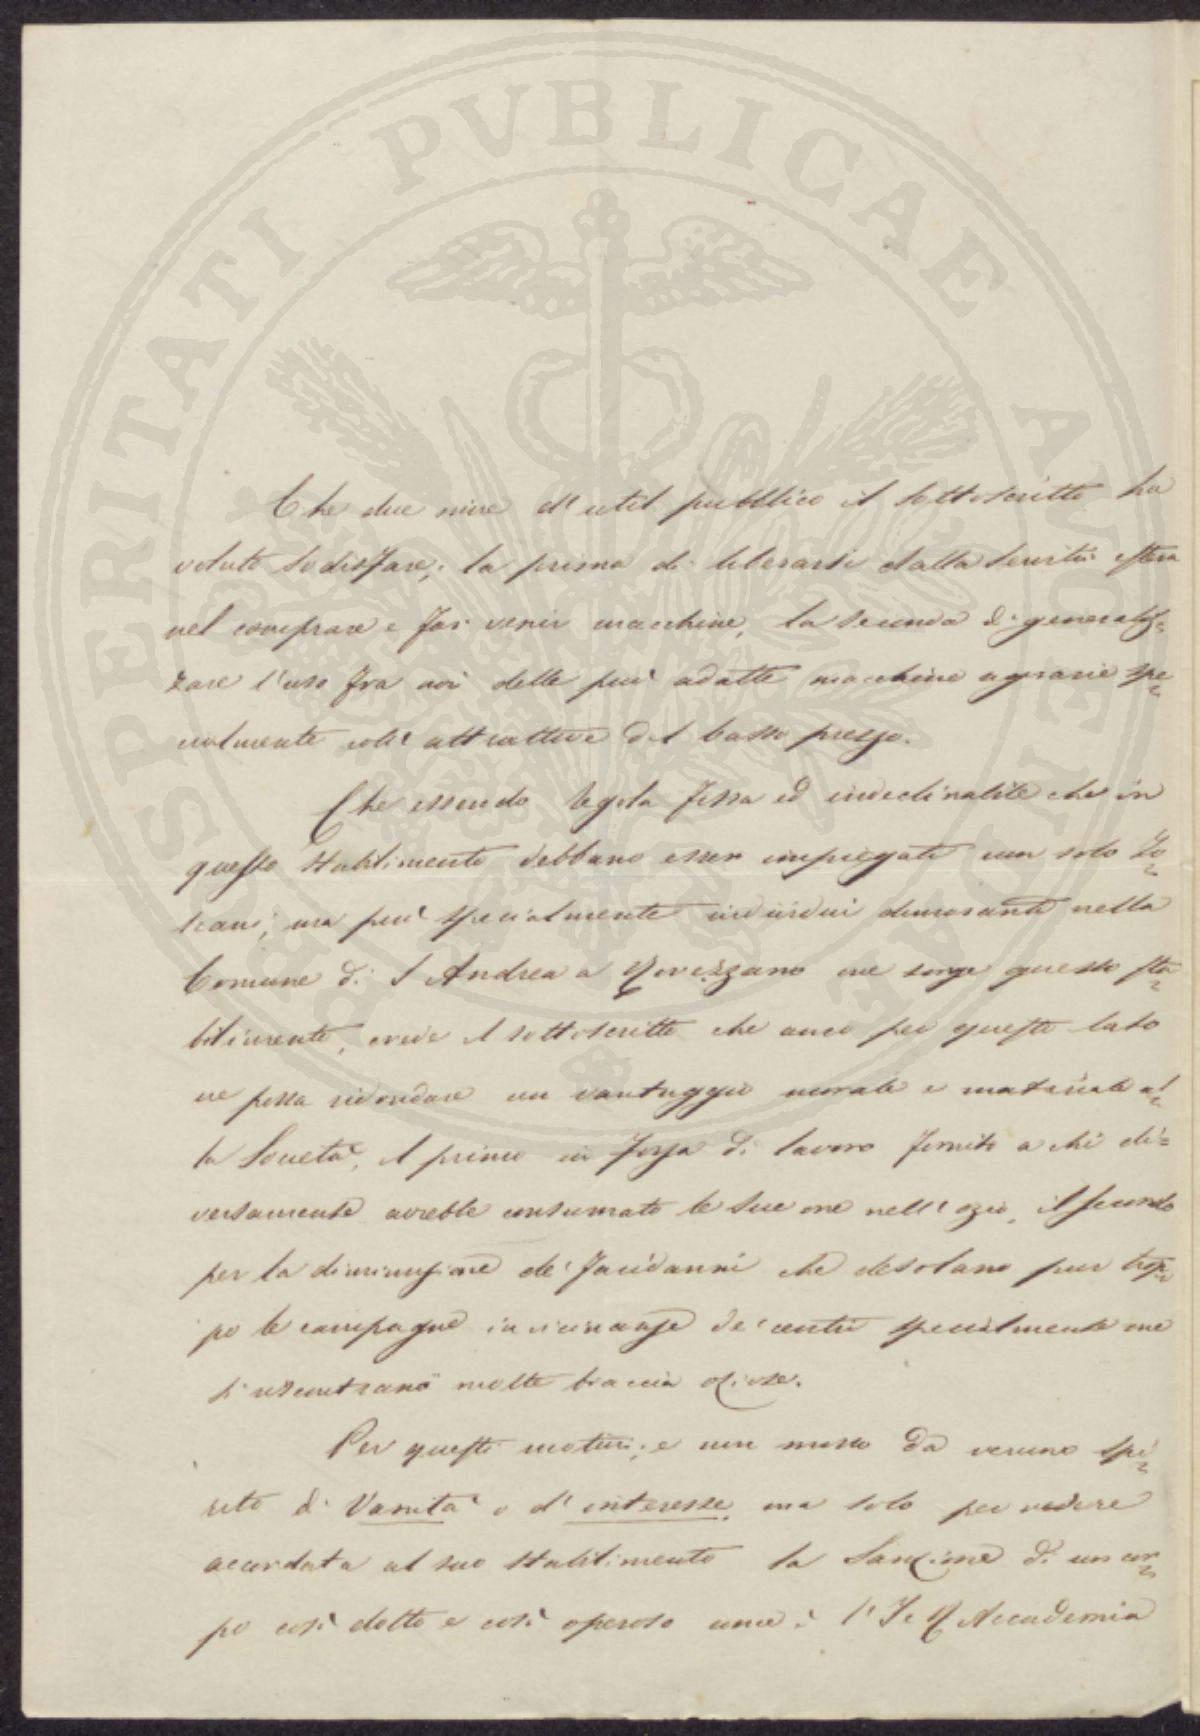 PROSPERITATI PUBLICAE AUGENDAE
Che due mire d'util pubblico il sottoscritto ha
voluto sodisfare; la prima di liberarsi dalla servitù estera
nel comprare e far venir macchine, la seconda di generaliz=
zare l'uso fra noi delle più adatte macchine agrarie spe=
cialmente coll'attrattiva del basso prezzo.
Che essendo regola fissa ed indeclinabile che in
questo stabilimento debbano esser impiegati non solo To=
scani, ma più specialmente individui dimoranti nella
Comune di S Andrea a Rovezzano ove sorge questo sta=
bilimento, crede il sottoscritto che anco per questo lato
ne possa ridondare un vantaggio morale e materiale al=
la Società, il primo in forza di lavoro fornito a chi di=
versamente avrebbe consumato le sue ore nell'ozio, il secondo
per la diminuzione de' facidanni che desolano pur trop=
po le campagne in vicinanza de' centri specialmente ove
s'incontrano molte braccia oziose.
Per questi motivi, e non mosso da veruno spi=
rito di Vanità o d'interesse, ma solo per vedere
accordata al suo stabilimento la Sanzione di un cor=
po così dotto e così operoso come è l'I e R Accademia